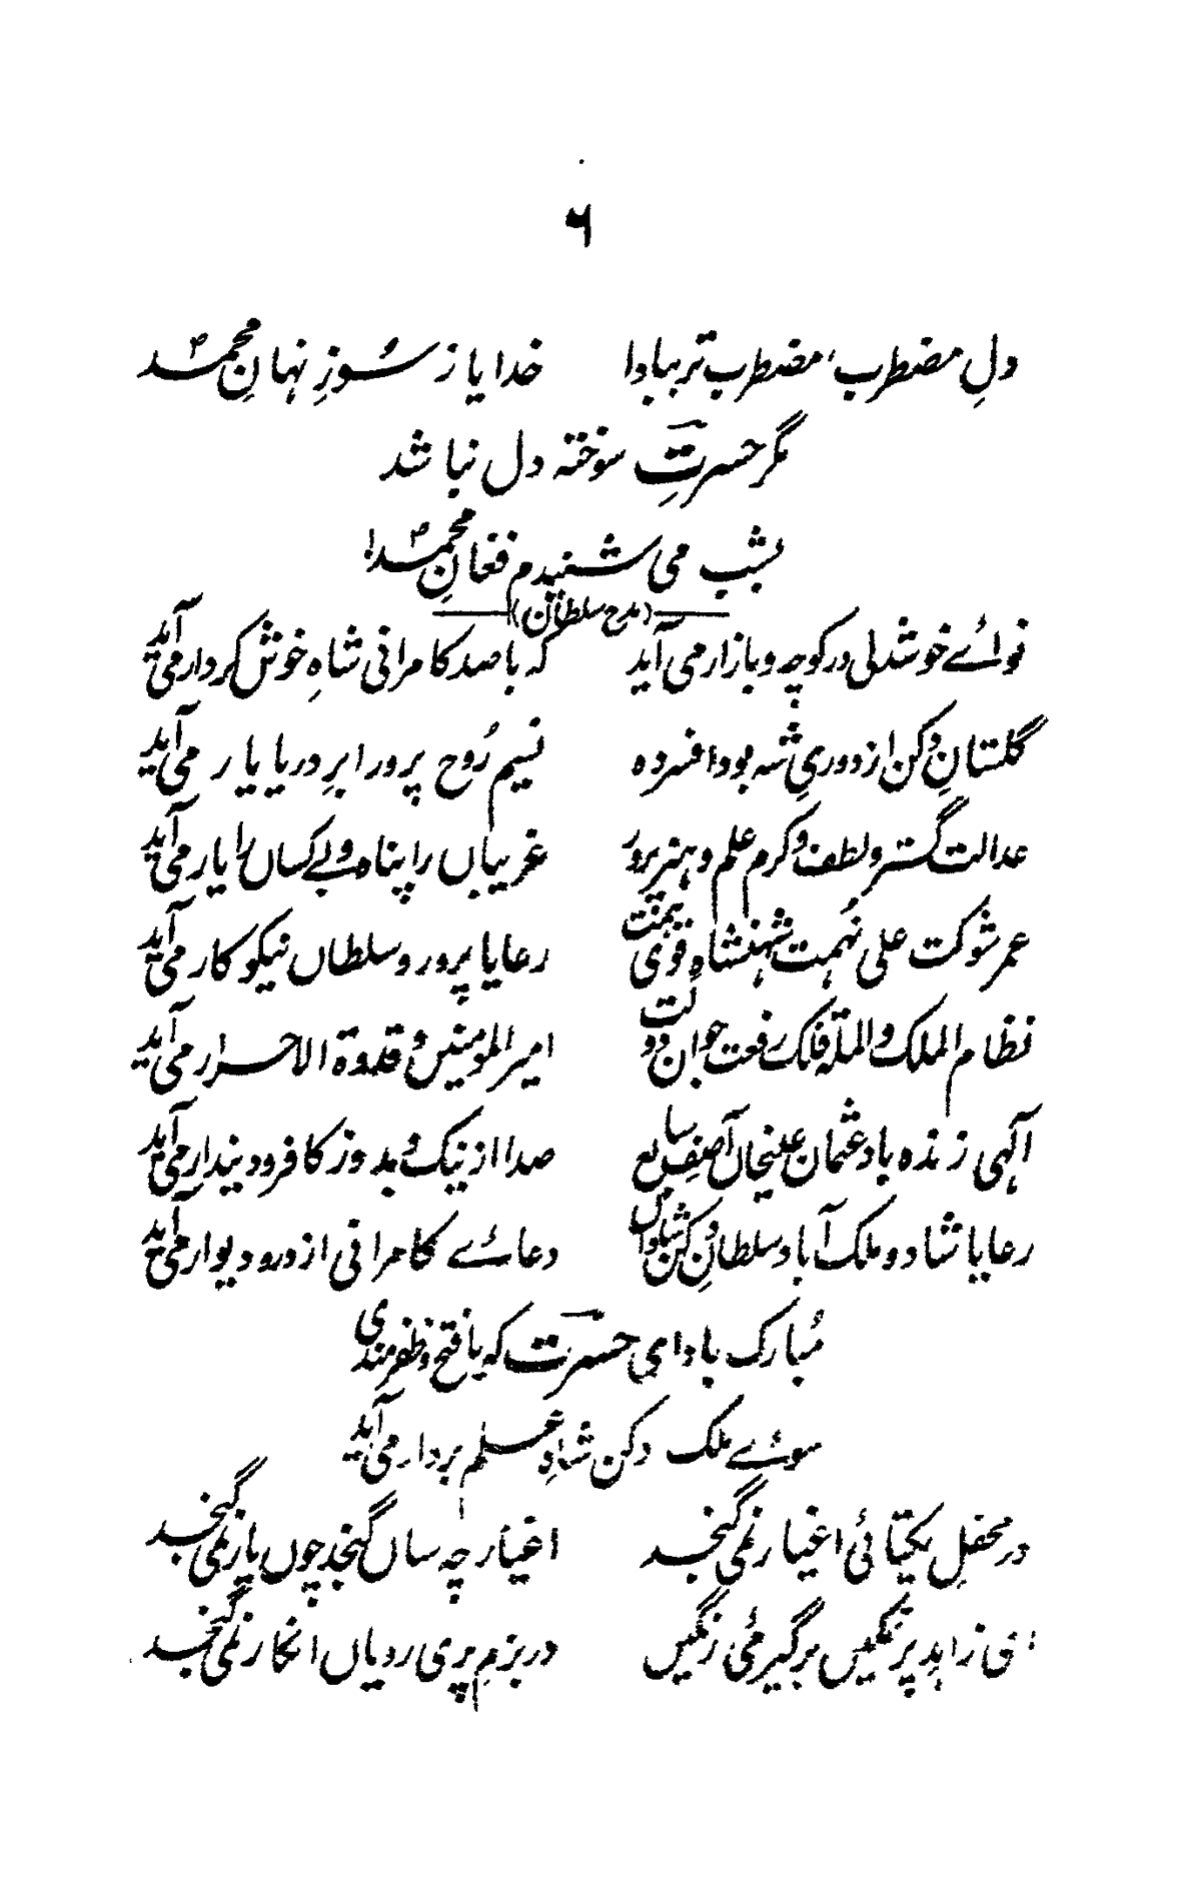 ۶
دلِ مضطرب، مضطرب تر مبادا خدایا ز سُوزِ نہانِ محمدؐ
مگر حسرتِ سوختہ دل نباشد
بشب می شنیدم فغانِ محمدؐ!
(مدح سلطان)
نوائے خوشدلی در کوچہ و بازار می آید کہ با صد کامرانی شاہِ خوش کردار می آید
گلستانِ دکن از دوریِ شہ بود افسردہ نسیم رُوح پرور ابرِ دریا بار می آید
عدالت گستر و لطف و کرم علم و ہنر پرور غریباں را پناہ و بے کساں را یار می آید
عمر شوکت علی نُہمت شہنشاہِ قوی ہمت رعایا پرور و سلطاں نیکو کار می آید
نظام الملک والملۃ فلک رفعت جواں دولت امیر المومنین و قدوۃ الاحرار می آید
آلہی زندہ باد عثمان علیخاں آصفِ سابع صدا از نیک و بد وز کافر و دیندار می آید
رعایا شاد و ملک آباد سلطانِ دکن شاداں دعائے کامرانی از در و دیوار می آید
مُبارک باد ای حسرت کہ با فتح و ظفرمندی
سوئے ملک دکن شاہِ علم بردار می آید
در محفلِ یکتائی اغیار نمی گنجد اغیار چہ ساں گنجد چوں یار نمی گنجد
ای زاہد پر تمکیں برگیر مئی رنگیں در بزمِ پری رویاں انکار نمی گنجد